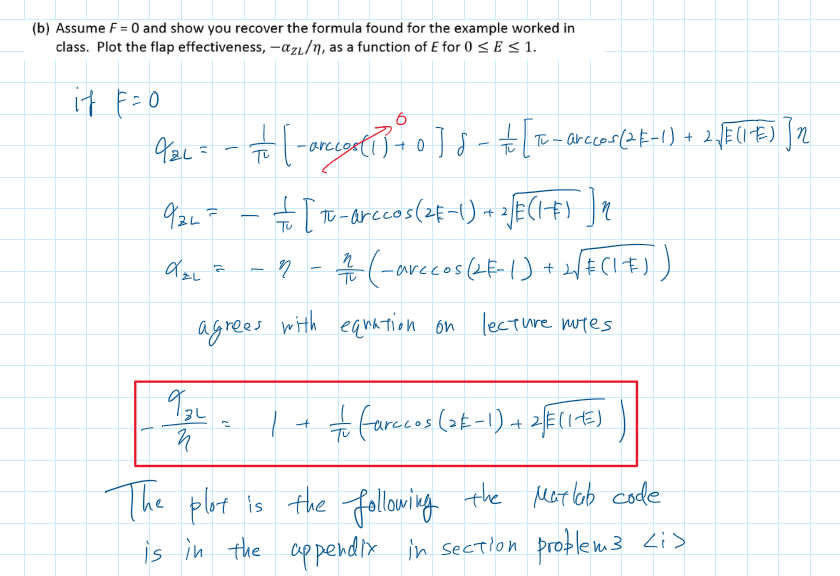 (b) Assume F = 0 and show you recover the formula found for the example worked in
class. Plot the flap effectiveness, −α_ZL/η, as a function of E for 0 ≤ E ≤ 1.
if F=0
α_ZL = - 1/π [ -arccos(1) + 0 ] δ - 1/π [ π - arccos(2E-1) + 2√(E(1-E)) ] η
0
α_ZL = - 1/π [ π - arccos(2E-1) + 2√(E(1-E)) ] η
α_ZL = - η - η/π ( -arccos(2E-1) + 2√(E(1-E)) )
agrees with equation on lecture notes
- α_ZL/η = 1 + 1/π ( -arccos(2E-1) + 2√(E(1-E)) )
The plot is the following the Matlab code
is in the appendix in section problem3 <i>